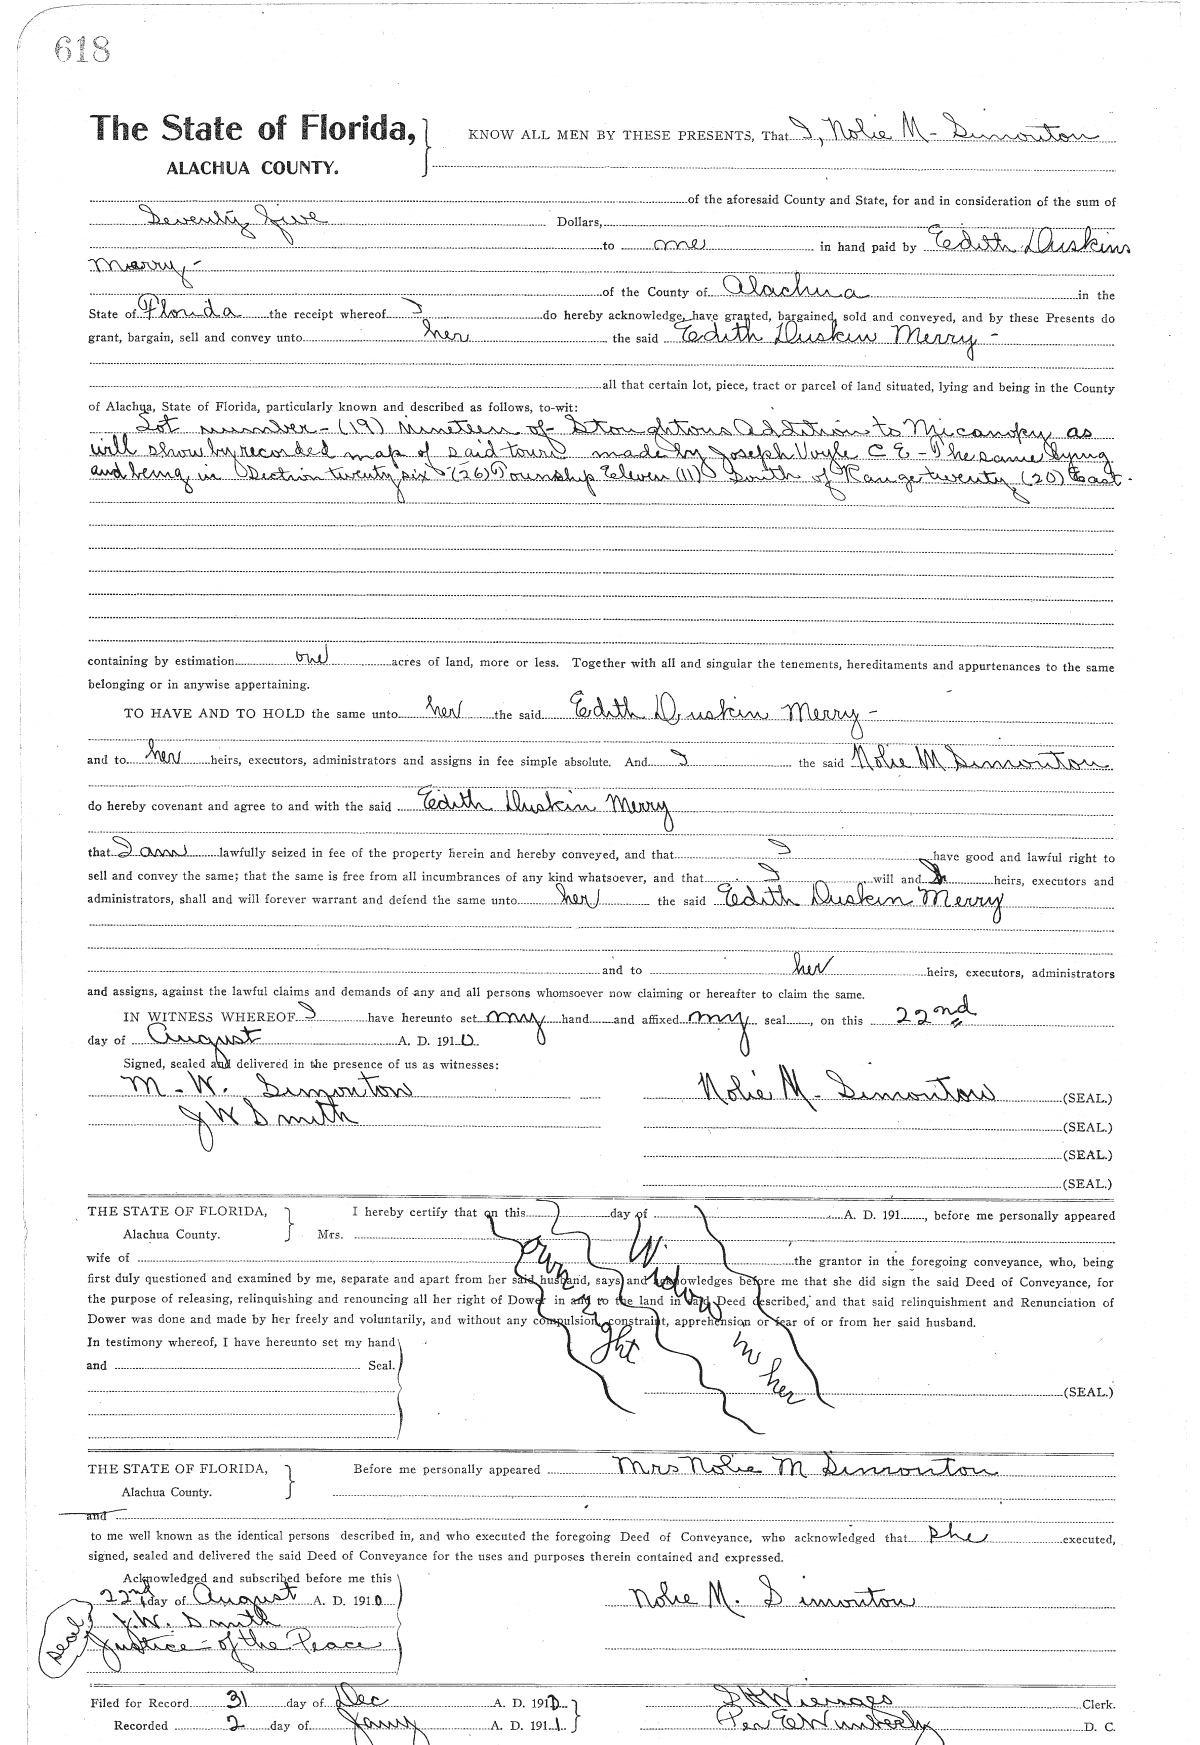 618
The State of Florida, KNOW ALL MEN BY THESE PRESENTS, That I, Nolie M- Simonton
ALACHUA COUNTY.
of the aforesaid County and State, for and in consideration of the sum of
Seventy five Dollars,
to me in hand paid by Edith Duskins
Merry-
of the County of Alachua in the
State of Florida the receipt whereof I do hereby acknowledge, have granted, bargained, sold and conveyed, and by these Presents do
grant, bargain, sell and convey unto her the said Edith Duskin Merry -
all that certain lot, piece, tract or parcel of land situated, lying and being in the County
of Alachua, State of Florida, particularly known and described as follows, to-wit:
Lot number - (19) nineteen of Stoughtons Addition to Micanopy as
will show by recorded map of said town made by Joseph Voyle C E - The same lying
and being in Section twenty six (26) Township Eleven (11) South of Range twenty (20) East.
containing by estimation one acres of land, more or less. Together with all and singular the tenements, hereditaments and appurtenances to the same
belonging or in anywise appertaining.
TO HAVE AND TO HOLD the same unto her the said Edith Duskin Merry -
and to her heirs, executors, administrators and assigns in fee simple absolute. And I the said Nolie M Simonton
do hereby covenant and agree to and with the said Edith Duskin Merry
that I am lawfully seized in fee of the property herein and hereby conveyed, and that I have good and lawful right to
sell and convey the same; that the same is free from all incumbrances of any kind whatsoever, and that I will and heirs, executors and
administrators, shall and will forever warrant and defend the same unto her the said Edith Duskin Merry
and to her heirs, executors, administrators
and assigns, against the lawful claims and demands of any and all persons whomsoever now claiming or hereafter to claim the same.
IN WITNESS WHEREOF I have hereunto set my hand and affixed my seal, on this 22nd
day of August A. D. 1910.
Signed, sealed and delivered in the presence of us as witnesses:
M - W. Simonton Nolie M- Simonton (SEAL.)
J W Smith (SEAL.)
(SEAL.)
(SEAL.)
THE STATE OF FLORIDA, I hereby certify that on this day of A. D. 191, before me personally appeared
Alachua County. Mrs.
wife of the grantor in the foregoing conveyance, who, being
first duly questioned and examined by me, separate and apart from her said husband, says and acknowledges before me that she did sign the said Deed of Conveyance, for
the purpose of releasing, relinquishing and renouncing all her right of Dower in and to the land in said Deed described, and that said relinquishment and Renunciation of
Dower was done and made by her freely and voluntarily, and without any compulsion, constraint, apprehension or fear of or from her said husband.
Widow in her
own right
In testimony whereof, I have hereunto set my hand
and Seal.
(SEAL.)
THE STATE OF FLORIDA, Before me personally appeared Mrs Nolie M Simonton
Alachua County.
and
to me well known as the identical persons described in, and who executed the foregoing Deed of Conveyance, who acknowledged that she executed,
signed, sealed and delivered the said Deed of Conveyance for the uses and purposes therein contained and expressed.
Acknowledged and subscribed before me this
22nd day of August A. D. 1910 Nolie M. Simonton
J.W. Smith
Seal Justice - of the Peace
Filed for Record 31 day of Dec A. D. 1910 Clerk.
Recorded 2 day of Jany A. D. 1911. Per E Wimberly D. C.